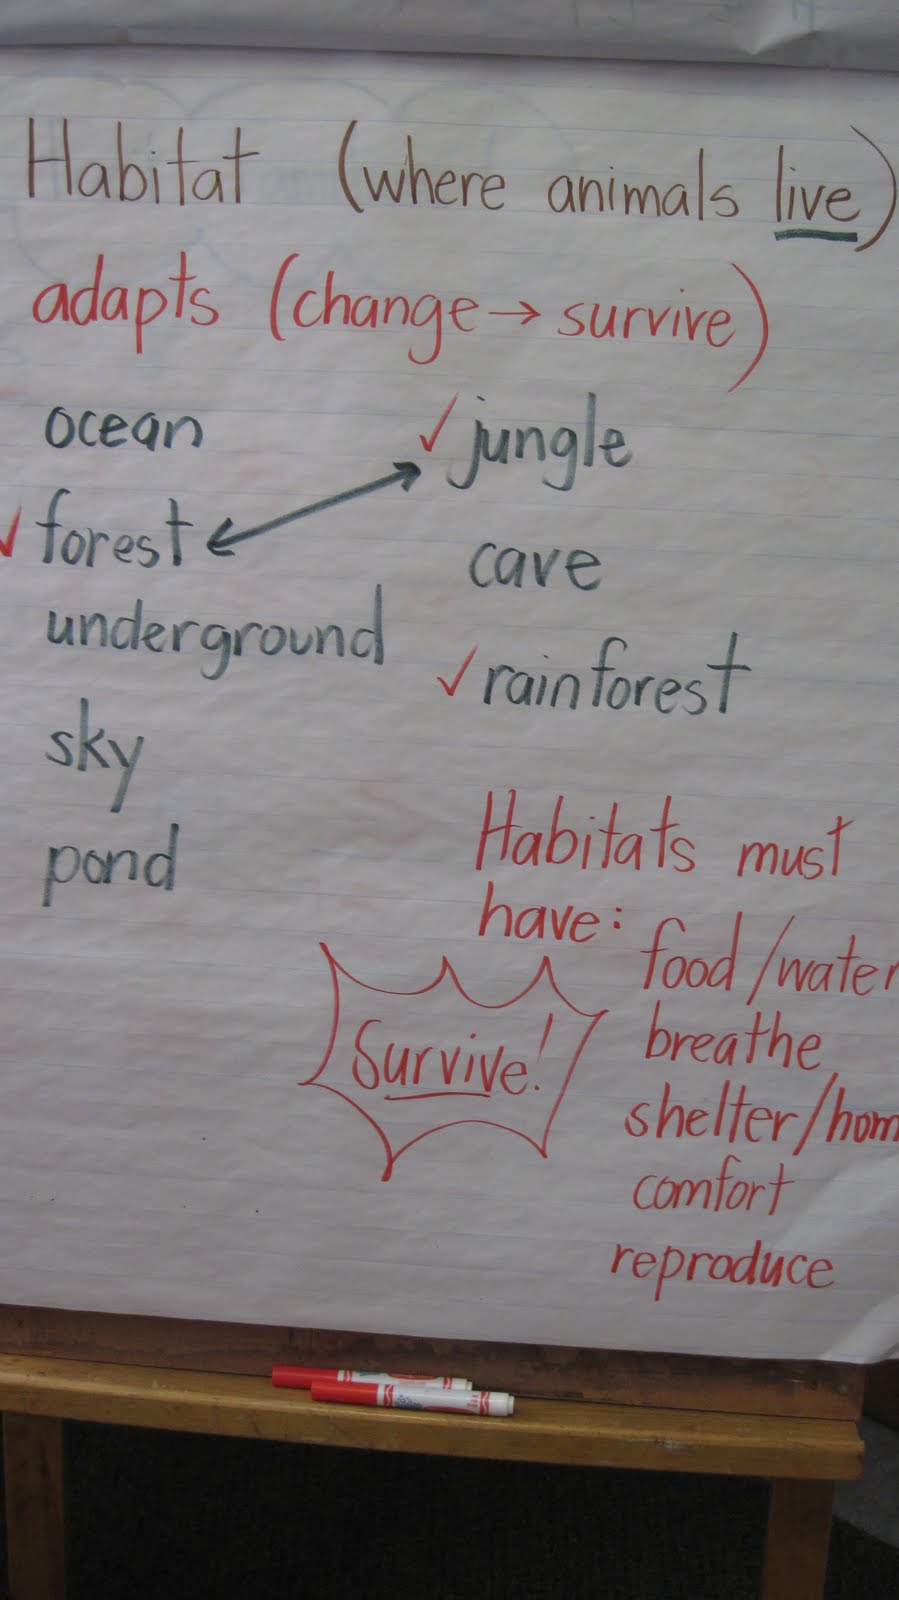 Habitat (where animals live)
adapts (change → survive)
ocean
✓ forest
underground
sky
pond
✓ jungle
cave
✓ rainforest
Habitats must
have:
food/water
breathe
shelter/hom
comfort
reproduce
Survive!